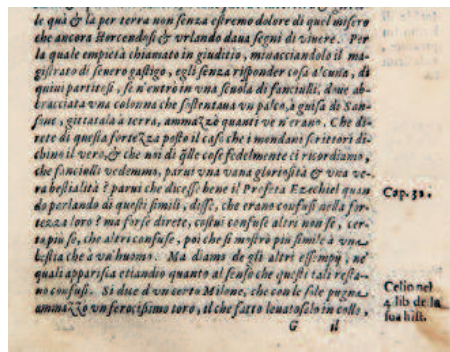 le quà & la per terra non senza estremo dolore di quel misero
che ancora storcendosi & vrlando daua segni di viuere. Per
la quale empietà chiamato in giuditio, minacciandolo il ma-
gistrato di seuero gastigo, egli senza risponder cosa alcuna, di
quiui partitosi, se n'entrò in vna scuola di fanciulli, doue ab-
bracciata vna colonna che sostentaua vn palco, à guisa di San-
sone, gittatala à terra, ammazzò quanti ve n'erano. Che di-
rete di questa fortezza posto il caso che i mondani scrittori di-
chino il vero, & che noi di q̃lle cose fedelmente ci ricordiamo,
che fanciolli vedemmo, parui vna vana gloriosità & vna ve-
ra bestialità? parui che dicesse bene il Profeta Ezechiel quan
do perlando di questi simili, disse, che erano confusi nella for-
tezza loro? ma forse direte, costui confuse altri non sè, cer-
to piu sè, che altri confuse, poi che si mostrò piu simile à vna
bestia che à vn'huomo. Ma diamo de gli altri essempij, ne'
quali apparisca etiandio quanto al senso che questi tali resta-
no confusi. Si dice d'vn certo Milone, che con le sole pugna
ammazzò vn ferocissimo toro, il che fatto leuatoselo in collo,
G
Cap. 32.
Celio nel
4 lib de la
sua hist.